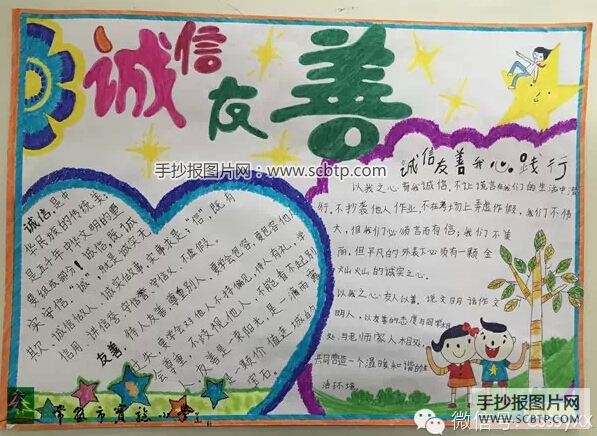 诚信
友善
手抄报图片网:www.scbtp.com
诚信友善我心践行
以我之心有我诚信,不让谎言在我们的生活中潜
行。不抄袭他人作业,不在考场上弄虚作假,我们不伟
大,但我们必须言而有信;我们不美
丽,但平凡的外表下必须有一颗金
灿灿的诚实之心。
以我之心友人以善,说文明话作文
明人,以友善的态度与同学相
处,与老师家人水相处,
共同营造一个温暖和谐的
诚信是中
华民族的传统美
是五千年中华文明的重
要组成部分!诚信,既诚
实、守信,"诚"就是诚实无
欺,诚信做人,诚实做事,实事求是;"信"既有
信用、讲信誉、守信誉、守信义、不虚假。
友善:待人友善,尊重别人,要学会包容,更包容他人
会尊重,不歧视他人,不能看不起别
人,友善是一束阳光,是一滴雨露
是一颗价值连城的
宝石。
手抄报图片网
WWW.SCBTP.COM